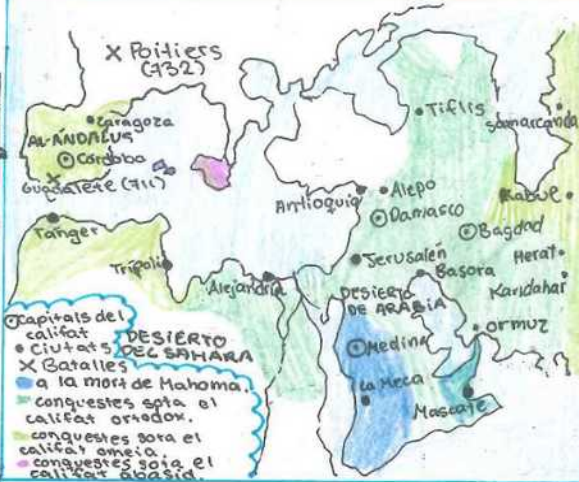 X Poitiers
(732)
Zaragoza
AL-ÁNDALUS
Córdoba
Guadalete (711)
Tanger
Trípoli
Alejandría
Tiflis
Samarcanda
Antioquia
Alepo
Damasco
Kabul
Bagdad
Jerusalén
Basora
Herat
Kandahar
DESIERTO
DE ARABIA
ormuz
Medina
La Meca
Mascate
DESIERTO
DEL SAHARA
Capitals del
califat
Ciutats
X Batalles
a la mort de Mahoma.
conquestes sota el
califat ortodox.
conquestes sota el
califat omeia.
conquestes sota el
califat abasid.